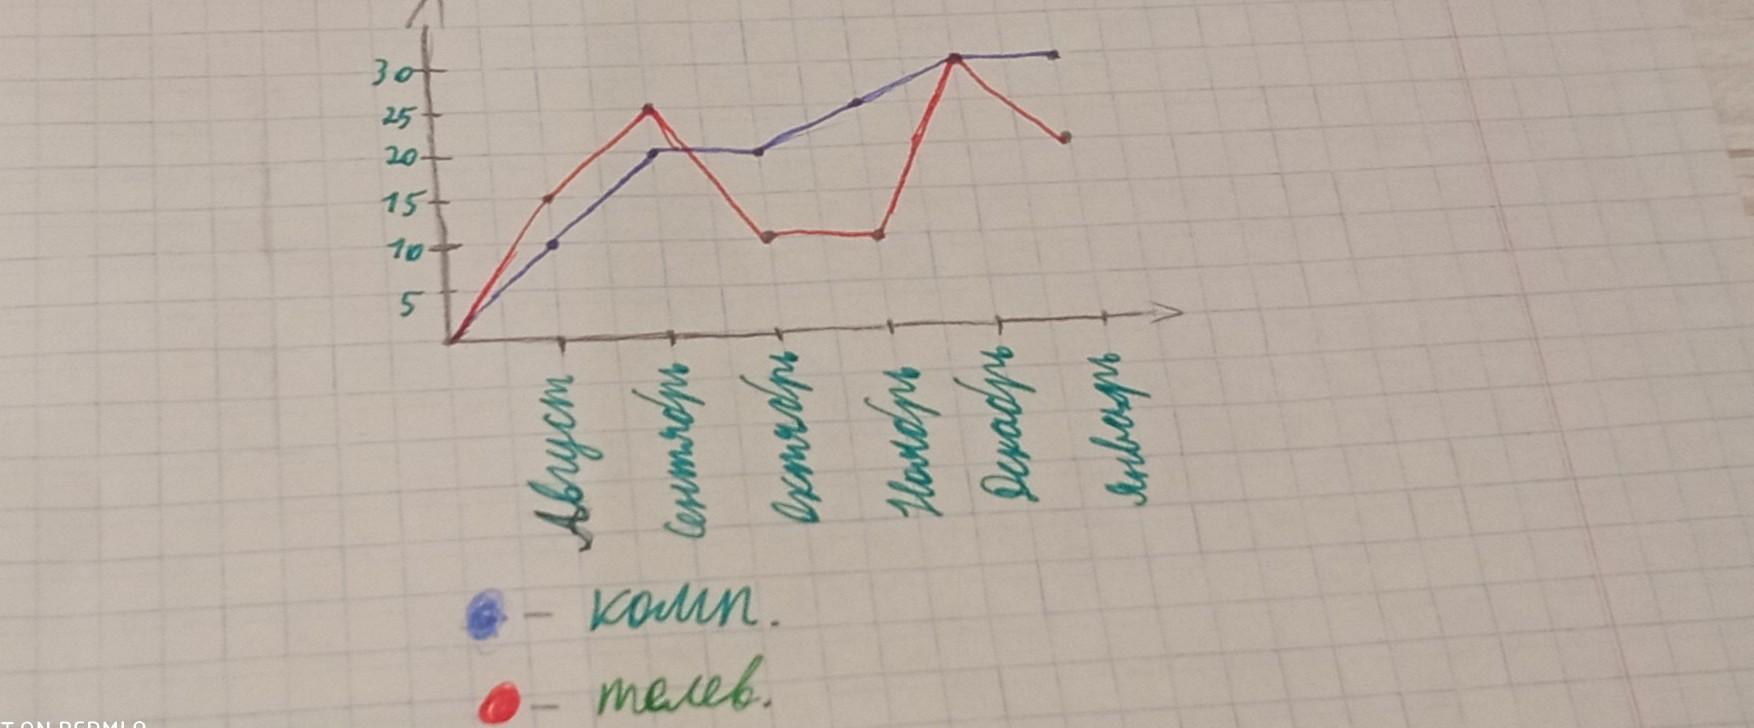 30
25
20
15
10
5
Август
Сентябрь
Октябрь
Ноябрь
Декабрь
Январь
- комп.
- телев.